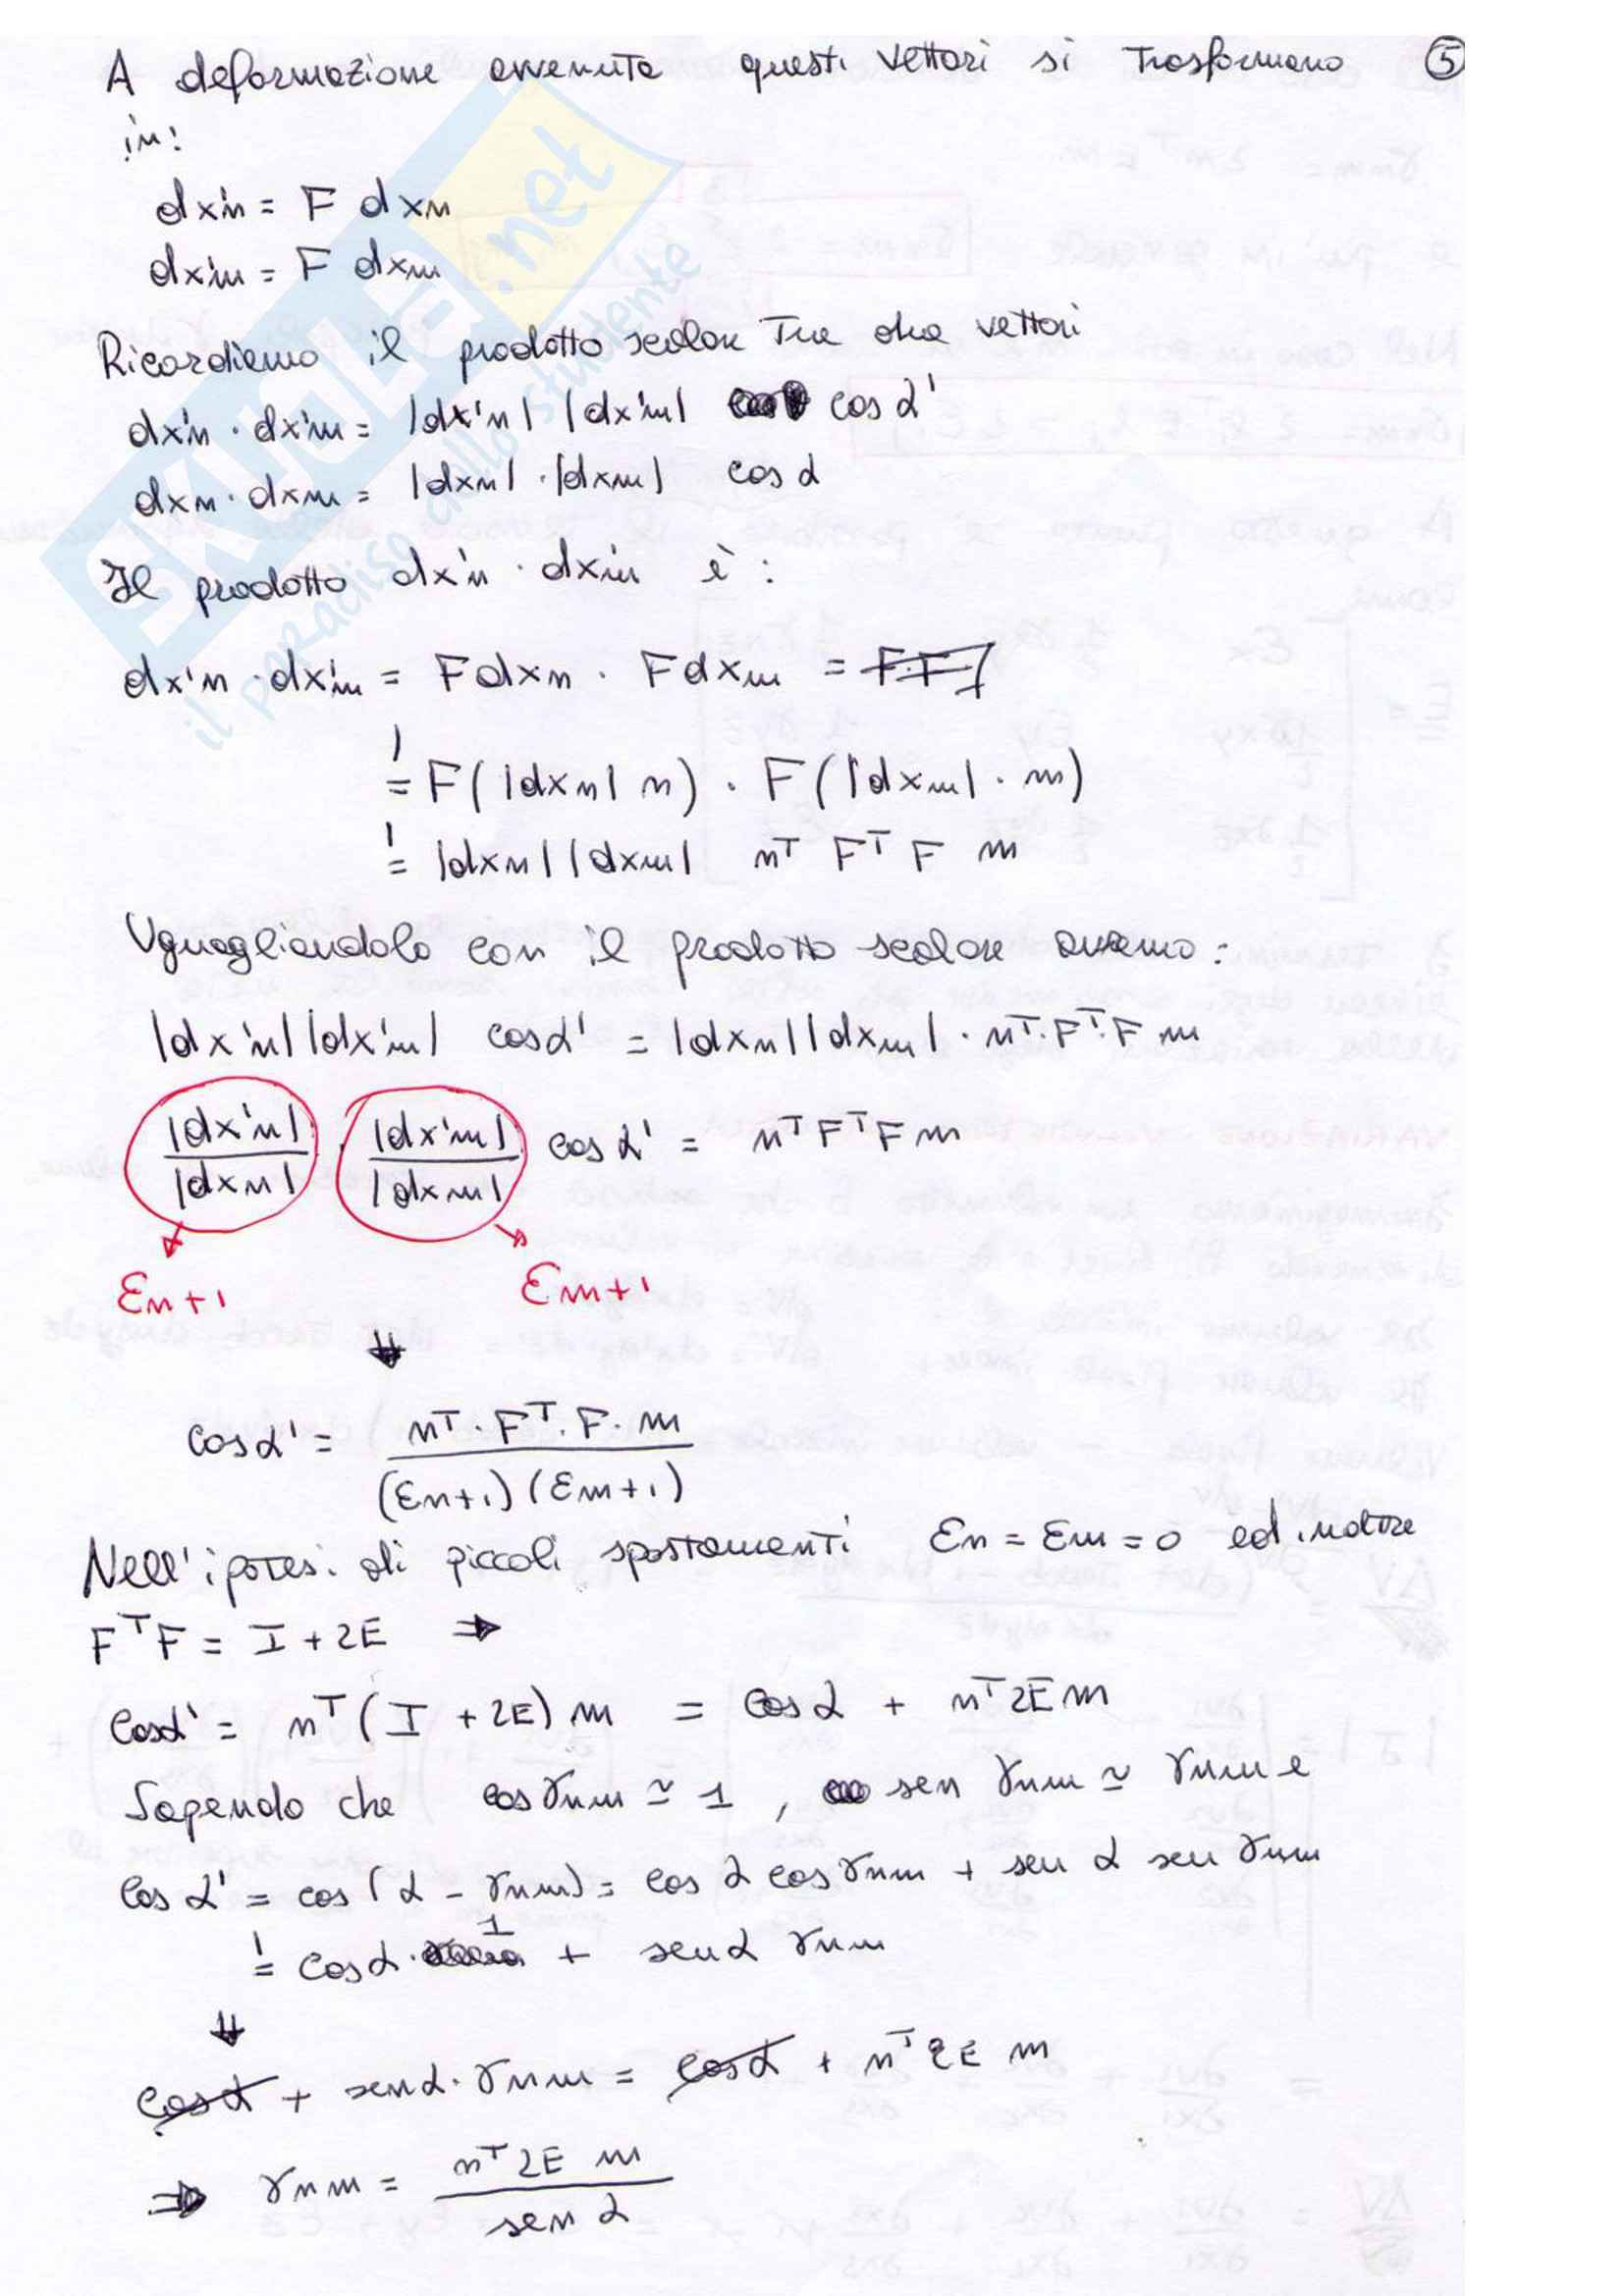 A deformazione avvenuta questi vettori si trasformano ⑤
in:
dx'n = F dxn
dx'm = F dxm
Ricordiamo il prodotto scalare tra due vettori
dx'n · dx'm = |dx'n| |dx'm| cos α'
dxn · dxm = |dxn| · |dxm| cos α
Il prodotto dx'n · dx'm è :
dx'n · dx'm = F dxn · F dxm =
= F(|dxn| n) · F(|dxm| · m)
= |dxn| |dxm| nᵀ Fᵀ F m
Uguagliandolo con il prodotto scalare avremo :
|dx'n| |dx'm| cos α' = |dxn| |dxm| · nᵀ · Fᵀ · F m
|dx'n| / |dxn| · |dx'm| / |dxm| cos α' = nᵀ Fᵀ F m
εn+1 εm+1
⇓
cos α' = nᵀ · Fᵀ · F · m / (εn+1) (εm+1)
Nell'ipotesi di piccoli spostamenti εn = εm = 0 ed inoltre
FᵀF = I + 2E ⇒
cos α' = nᵀ (I + 2E) m = cos α + nᵀ 2E m
Sapendo che cos γnm ≃ 1 , sen γnm ≃ γnm e
cos α' = cos (α - γnm) = cos α cos γnm + sen α sen γnm
= cos α · 1 + sen α γnm
⇓
cos α + sen α · γnm = cos α + nᵀ 2E m
⇒ γnm = nᵀ 2E m / sen α
SKUOLA.net
il paradiso dello studente